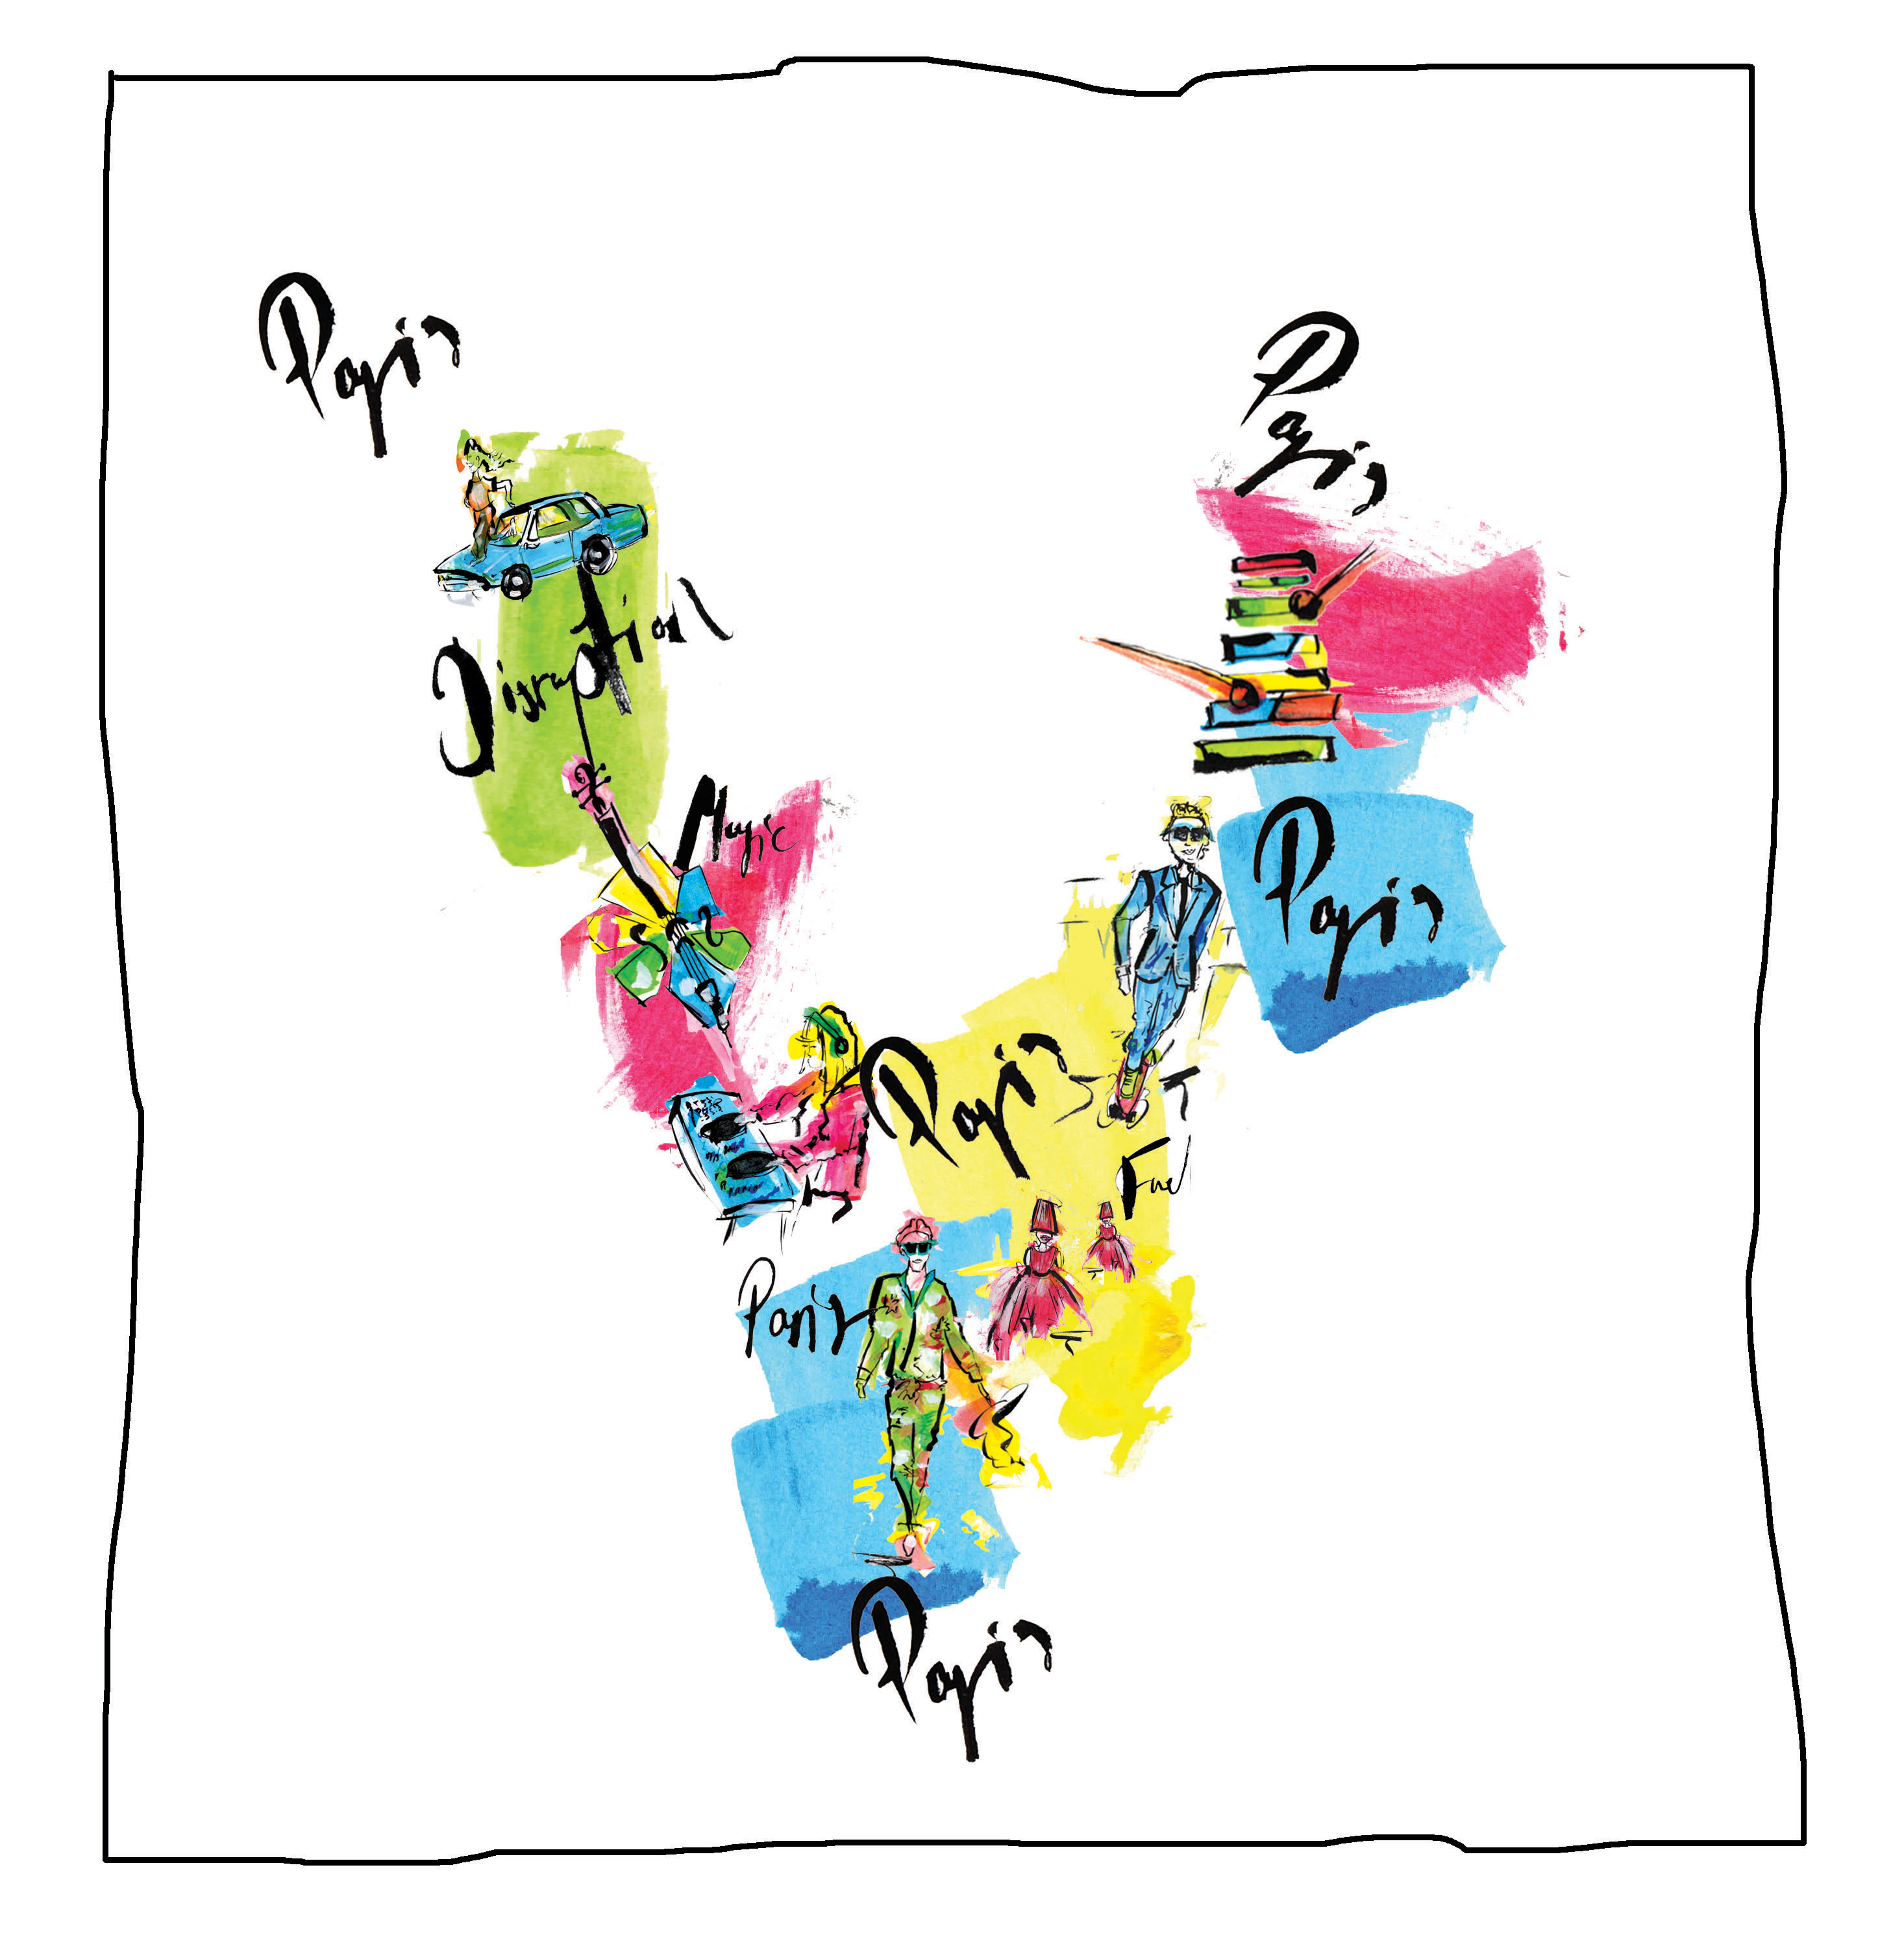 Paris
Paris
Disruption
Music
Paris
Paris
Fuel
Paris
Paris